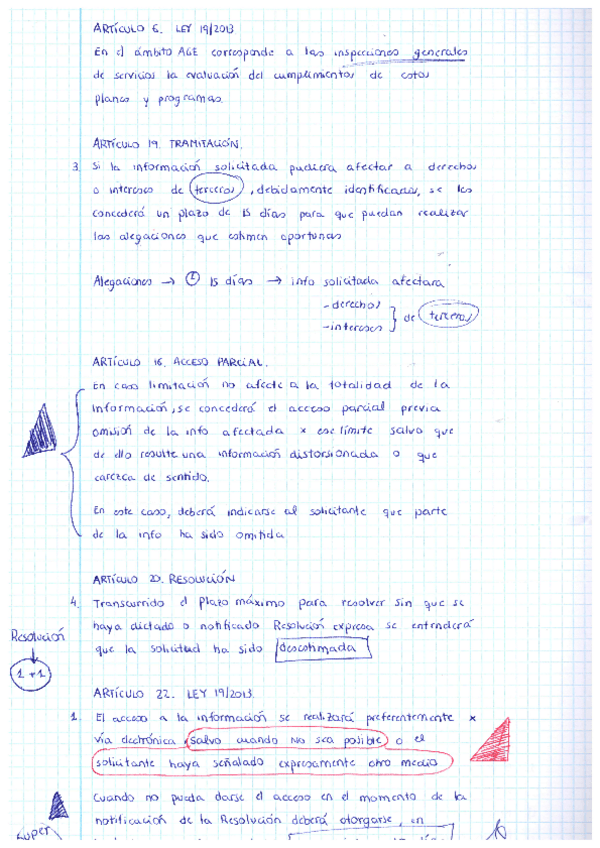 ARTÍCULO 6. LEY 19/2013
En el ámbito AGE corresponde a las inspecciones generales
de servicios la evaluación del cumplimientos de estos
planes y programas.
ARTÍCULO 19. TRAMITACIÓN.
3. Si la información solicitada pudiera afectar a derechos
o intereses de terceros, debidamente identificados, se les
concederá un plazo de 15 días para que puedan realizar
las alegaciones que estimen oportunas
Alegaciones → 15 días → info solicitada afectara
- derechos
- intereses } de terceros
ARTÍCULO 16. ACCESO PARCIAL.
En caso limitación no afecte a la totalidad de la
información, se concederá el acceso parcial previa
omisión de la info afectada x ese límite salvo que
de ello resulte una información distorsionada o que
carezca de sentido.
En este caso, deberá indicarse al solicitante que parte
de la info ha sido omitida
ARTÍCULO 20. RESOLUCIÓN
4. Transcurrido el plazo máximo para resolver sin que se
haya dictado o notificado Resolución expresa se entenderá
que la solicitud ha sido desestimada
Resolución
↓
1 + 1
ARTÍCULO 22. LEY 19/2013.
1. El acceso a la información se realizará preferentemente x
vía electrónica, salvo cuando no sea posible o el
solicitante haya señalado expresamente otro medio
Cuando no pueda darse el acceso en el momento de la
notificación de la Resolución deberá otorgarse, en
super